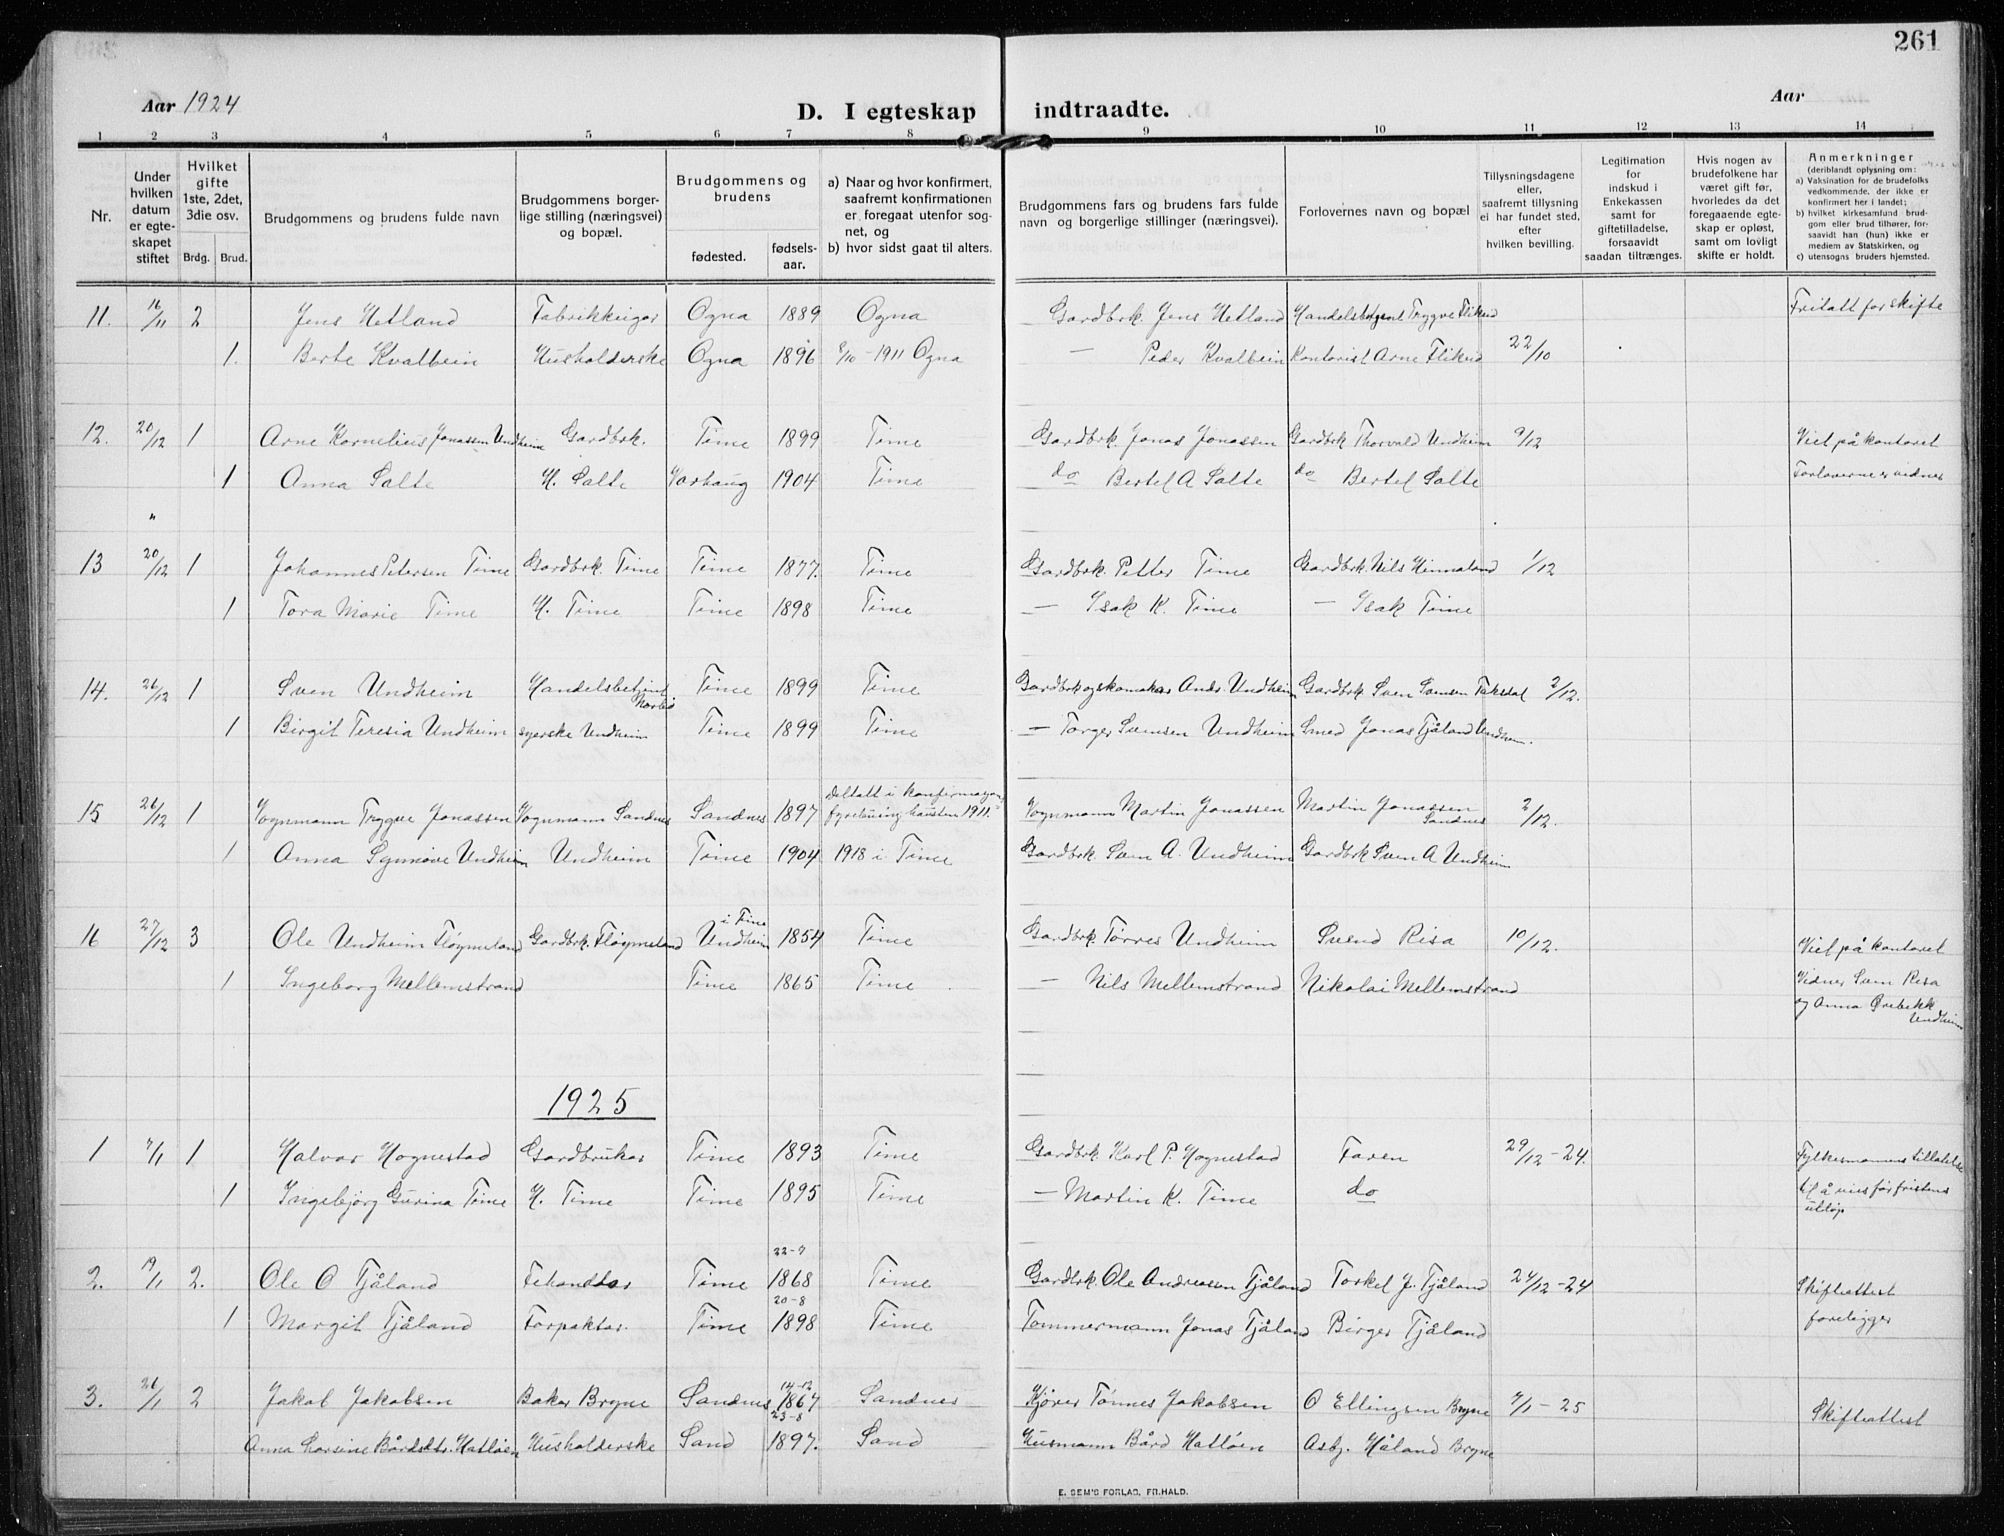 261
Aar 1924
D. I egteskap indtraadte.
Aar
1 2 3 4 5 6 7 8 9 10 11 12 13 14
Nr.
Under hvilken datum er egteskapet stiftet
Hvilket gifte 1ste, 2det, 3die osv.
Brdg. Brud.
Brudgommens og brudens fulde navn
Brudgommens borgerlige stilling (næringsvei) og bopæl.
Brudgommens og brudens
fødested. fødselsaar.
a) Naar og hvor konfirmert, saafremt konfirmationen er foregaat utenfor sognet, og
b) hvor sidst gaat til alters.
Brudgommens fars og brudens fars fulde navn og borgerlige stillinger (næringsvei).
Forlovernes navn og bopæl
Tillysningsdagene eller, saafremt tillysning ei har fundet sted, efter hvilken bevilling.
Legitimation for indskud i Enkekassen samt for giftetilladelse, forsaavidt saadan tiltrænges.
Hvis nogen av brudefolkene har været gift før, hvorledes da det foregaaende egteskap er opløst, samt om lovligt skifte er holdt.
Anmerkninger (deriblandt oplysning om:
a) Vaksination for de brudefolks vedkommende, der ikke er konfirmert her i landet;
b) hvilket kirkesamfund brudgom eller brud tilhører, forsaavidt han (hun) ikke er medlem av Statskirken, og
c) utensogns bruders hjemsted.
11. 16/11 2 Jens Hetland Fabrikkeigar Ogna 1889 Ogna Gardbrk. Jens Hetland Handelsbetjent Trygve Flikeid Fritatt for skifte
1. Berte Kvalbein Husholderske Ogna 1896 8/10-1911 Ogna — Peder Kvalbein Kontorist Arne Flikeid 22/10
12. 20/12 1 Arne Kornelius Jonassen Undheim Gardbrk. Time 1899 Time Gardbrk. Jonas Jonassen Gardbrk Thorvald Undheim 9/12 Viet på kontoret
1 Anna Salte H. Salte Varhaug 1904 Time do Bertel A Salte do Bertel Salte Forloverne er vidner
"
13 20/12 1 Johannes Petersen Time Gardbrk. Time Time 1877. Time Gardbrk. Petter Time Gardbrk. Nils Hinnaland 1/12
1 Tora Marie Time H. Time Time 1898 Time — Isak K. Time — Isak Time
14. 26/12 1 Sven Undheim Handelsbetjent Time 1899 Time Gardbrk og skomaker Andr. Undheim Gardbrk. Sven Svensen Taksdal 2/12.
1 Birgit Teresia Undheim syerske Undheim Time 1899 Time — Torger Svensen Undheim Smed Jonas Tjåland Undheim.
15 26/12 1 Vognmann Trygve Jonassen Vognmann Sandnes Sandnes 1897 deltatt i konfirmasjonsfyrebuing hausten 1911. Vognmann Martin Jonassen Martin Jonassen Sandnes 2/12.
1 Anna Synnøve Undheim Undheim Time 1904 1918 i Time Gardbrk. Sven A. Undheim Gardbrk Sven A Undheim
16 27/12 3 Ole Undheim Fløymeland Gardbrk. Fløymeland Undheim i Time 1854 Time Gardbrk Tørres Undheim Svend Risa 10/12. Viet på kontoret
1 Ingeborg Mellemstrand Time 1865 Time — Nils Mellemstrand Nikolai Mellemstrand Vidner Sven Risa
og Anna Ørebekk Undheim
1925
1 4/1 1 Halvar Hognestad Gardbrukar Time 1893 Time Gardbrk Karl P. Hognestad Faren 29/12-24. Fylkesmannens tillatelse
1 Ingebjørg Gurina Time H. Time Time 1895 Time — Martin K. Time do til å vies før fristens
utløp
2. 19/1 2. Ole O Tjåland Fehandlar Time 22-7 1868 Time Gardbrk Ole Andreassen Tjåland Torkel J. Tjåland 24/12-24 Skifteattest
1 Margit Tjåland Forpaktar. Time 20-8 1898 Time Tommermann Jonas Tjåland Birger Tjåland foreligger
3. 26/1 2 Jakob Jakobsen Baker Bryne Sandnes 14-12 1867 Sandnes Kjører Tønnes Jakobsen O Ellingsen Bryne 7/1-25 Skifteattest
Anna Larsine Bårdsdtr. Hatløen Husholderske Sand 23-8 1897. Sand Husmann Bård Hatløen Asbj. Håland Bryne
E. SEM'S FORLAG, FR.HALD.